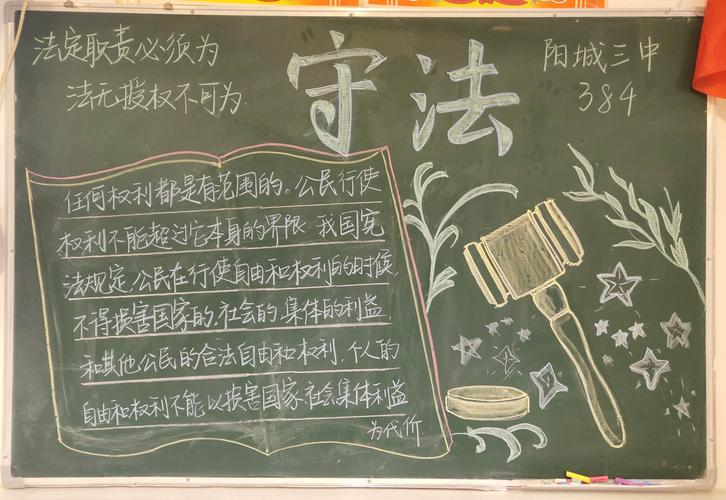 法定职责必须为
法无授权不可为.
守法
阳城三中
384
任何权利都是有范围的。公民行使
权利不能超过它本身的界限.我国宪
法规定,公民在行使自由和权利的时候,
不得损害国家的,社会的,集体的利益,
和其他公民的合法自由和权利.个人的
自由和权利不能以损害国家、社会集体利益
为代价